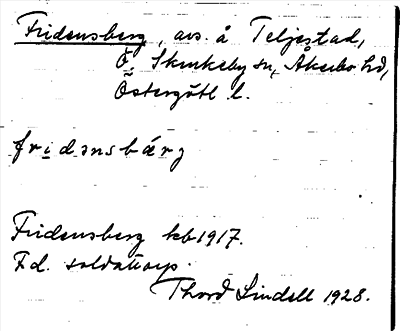 Fridensberg, avs. å Teljestad,
Ö. Skrukeby sn, Åkerbo hd,
Östergötl. l.
fridənsbærg
Fridensberg kb 1917.
F.d. soldattorp.
Thord Lindell 1928.